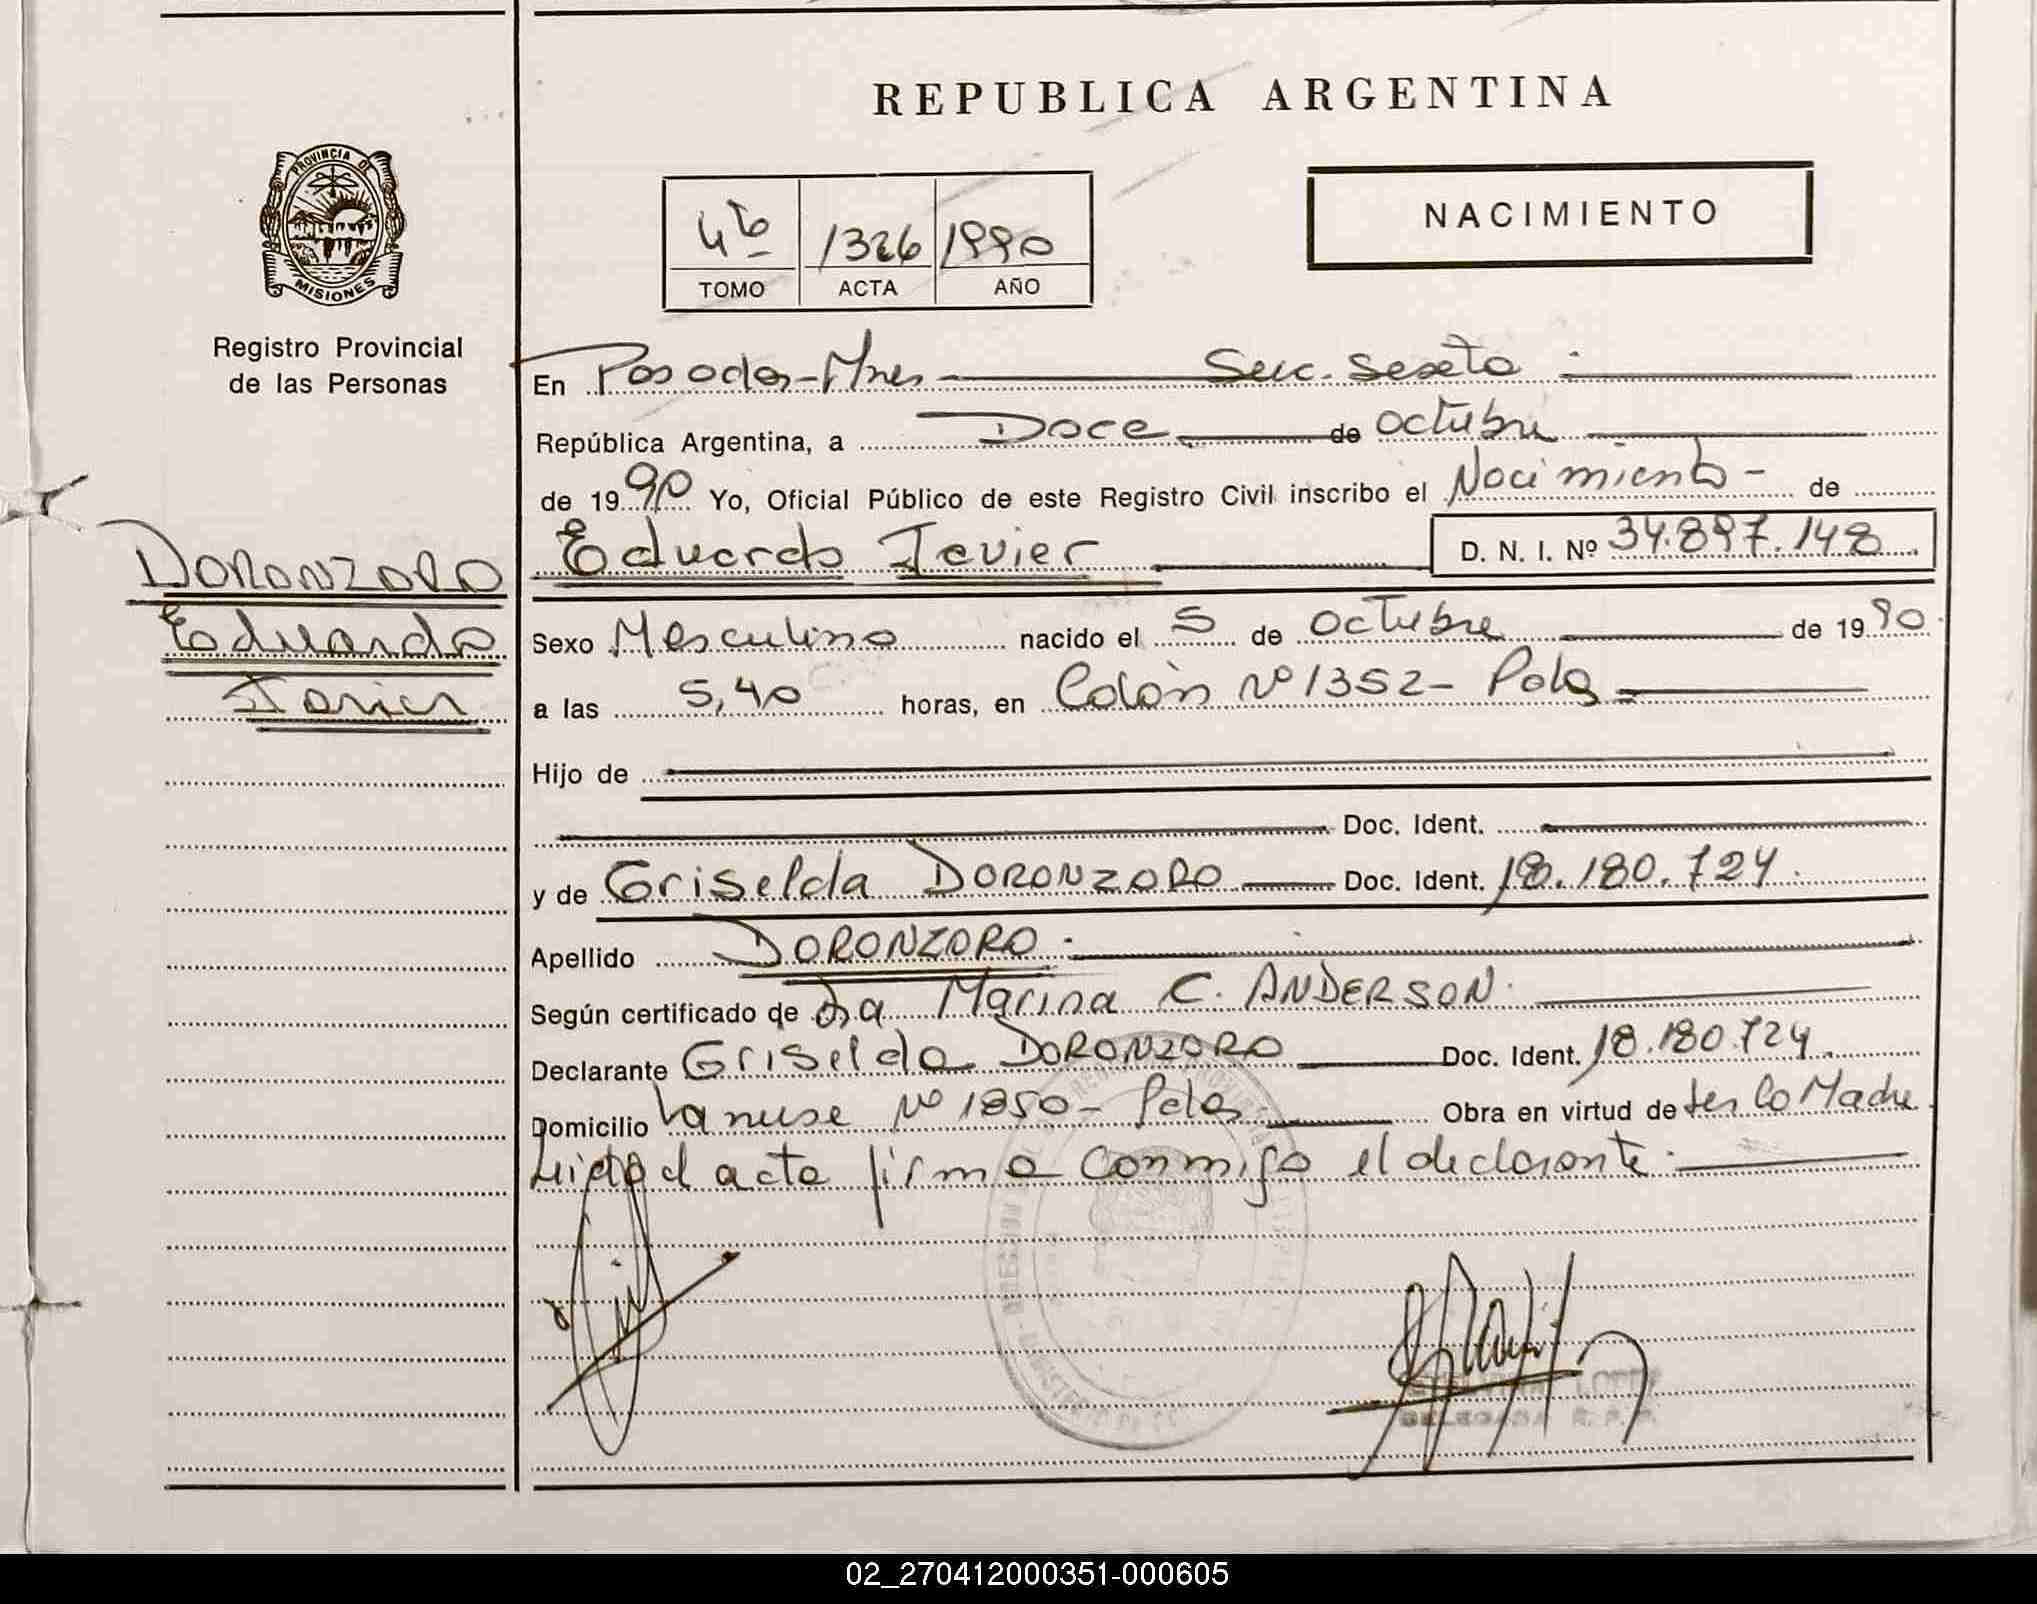 REPUBLICA ARGENTINA
PROVINCIA DE
MISIONES
Registro Provincial
de las Personas
4to 1326 1990
TOMO ACTA AÑO
NACIMIENTO
En Posadas-Mnes- Secc. Sexta
República Argentina, a Doce de octubre
de 1990 Yo, Oficial Público de este Registro Civil inscribo el Nacimiento- de
Eduardo Javier D. N. I. Nº 34.897.148
DORONZORO
Eduardo
Javier
Sexo Masculino nacido el 5 de octubre de 1990
a las 5,40 horas, en Colón Nº 1352- Pdas
Hijo de
Doc. Ident.
y de Griselda DORONZORO Doc. Ident. 18.180.724.
Apellido DORONZORO.
Según certificado de Dra Marina C. ANDERSON.
Declarante Griselda DORONZORO Doc. Ident. 18.180.724
Domicilio Lanusse Nº 1850- Pdas Obra en virtud de ser la Madre
Leida el acta firma conmigo el declarante.
LOPEZ
DELEGADA R. P. P.
02_270412000351-000605